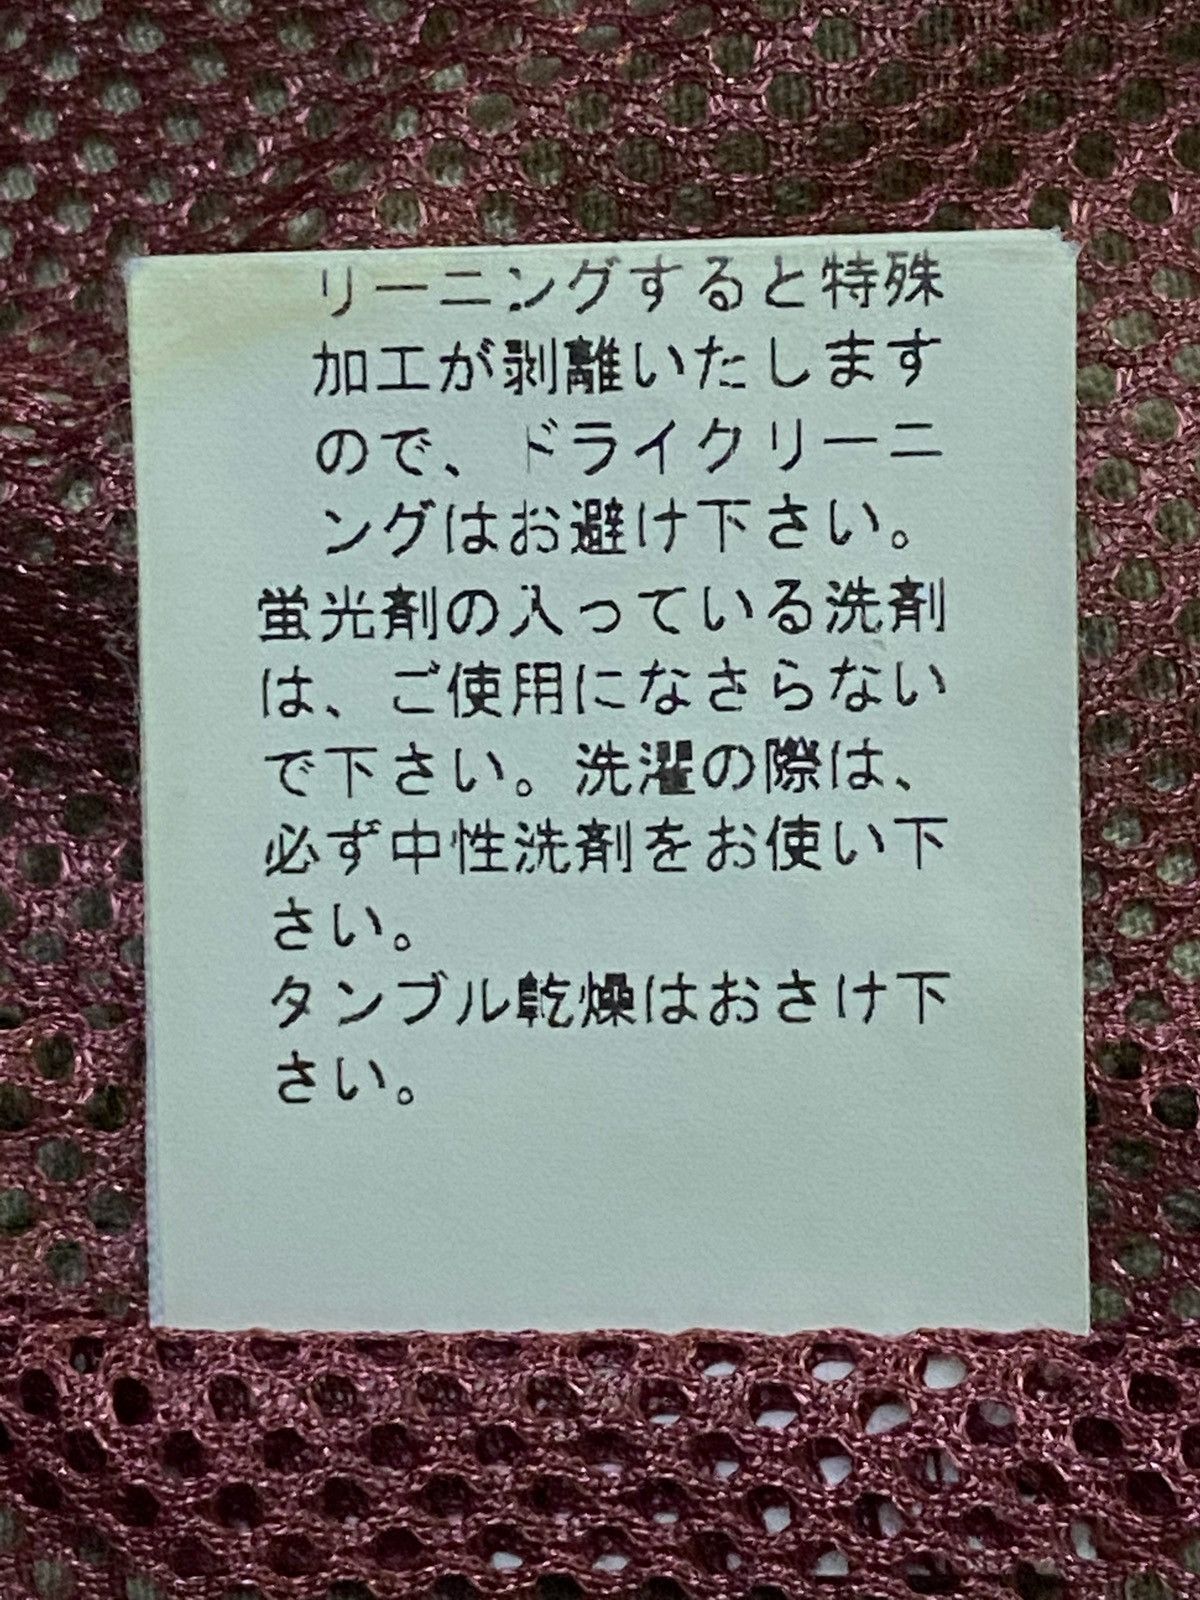 リーニングすると特殊
加工が剥離いたします
ので、ドライクリーニ
ングはお避け下さい。
蛍光剤の入っている洗剤
は、ご使用になさらない
で下さい。洗濯の際は、
必ず中性洗剤をお使い下
さい。
タンブル乾燥はおさけ下
さい。